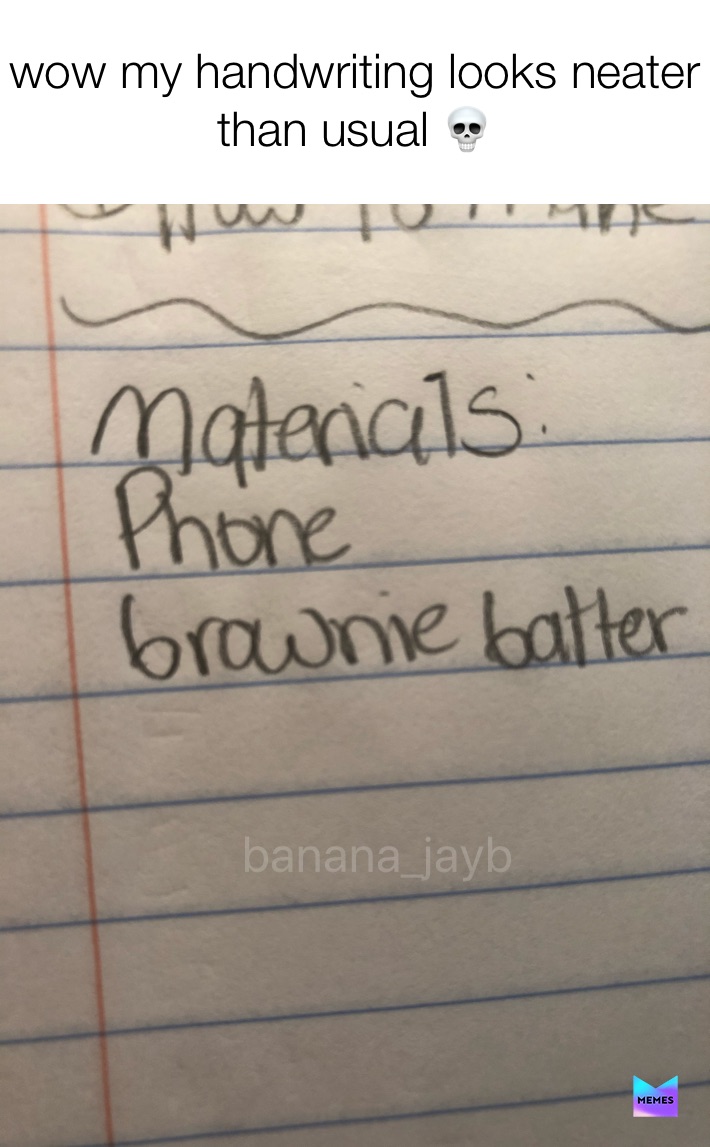 wow my handwriting looks neater
than usual 💀
How To
Materials:
Phone
brownie batter
banana_jayb
MEMES